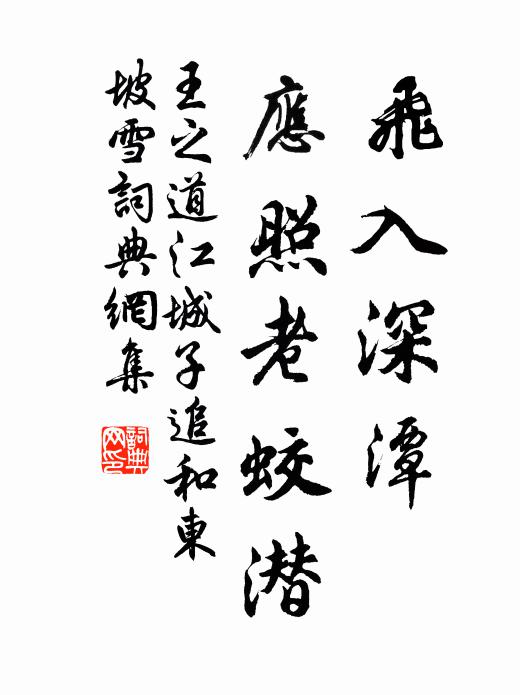 飛入深潭
應照老蛟潛
王之道江城子追和東
坡雪詞典網集
詞典
網印